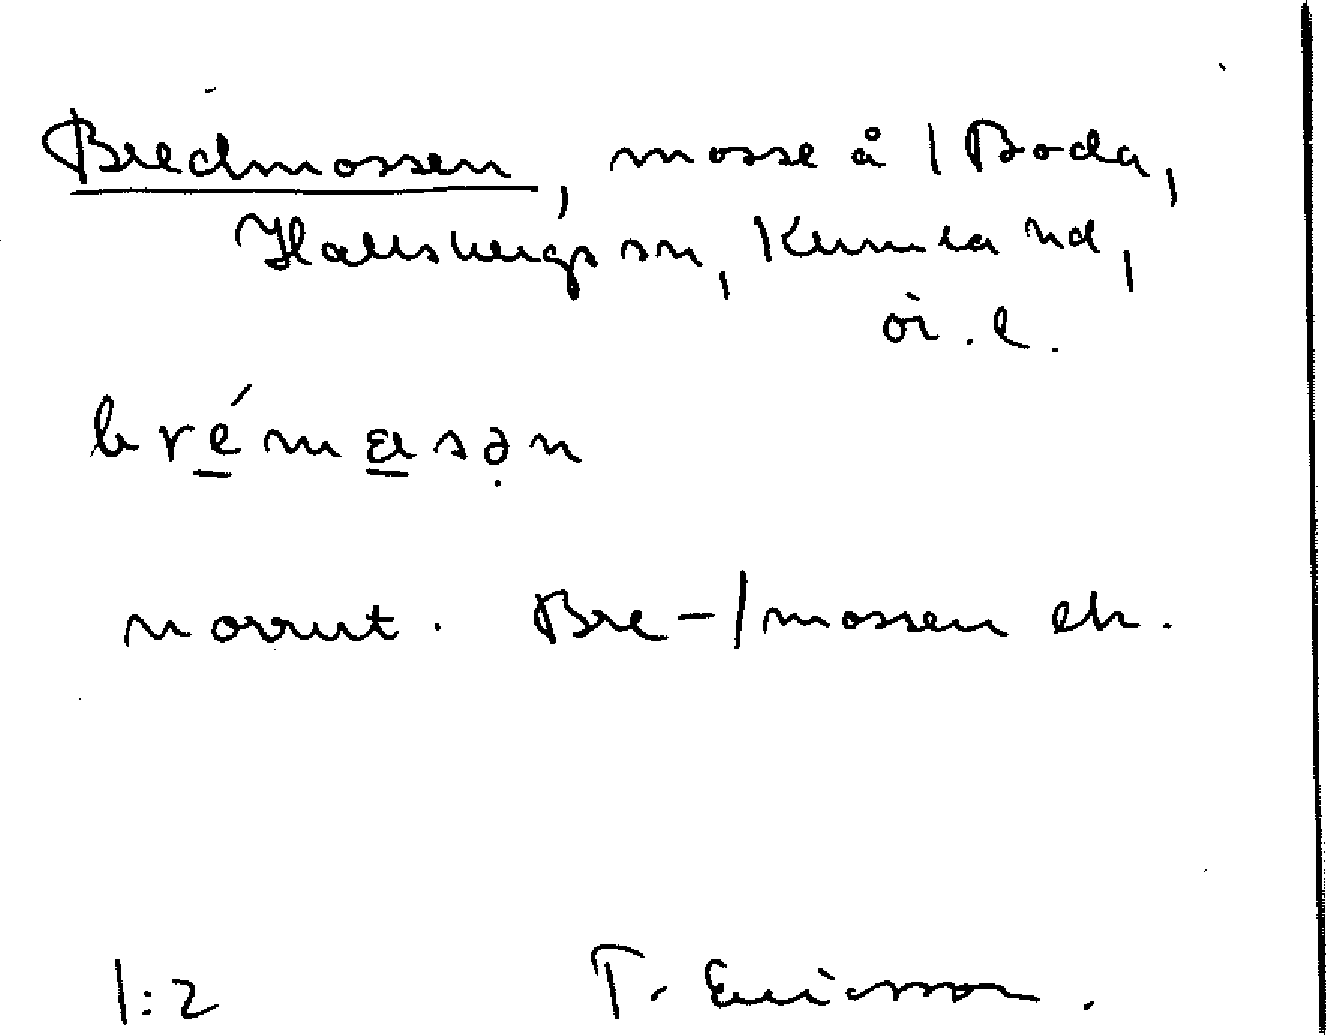 Bredmossen, mosse å | Boda,
Hallsbergs sn, Kumla hd,
ör. l.
brémasən
norrut. Bre-|mossen ek.
1:2 T. Ericsson.